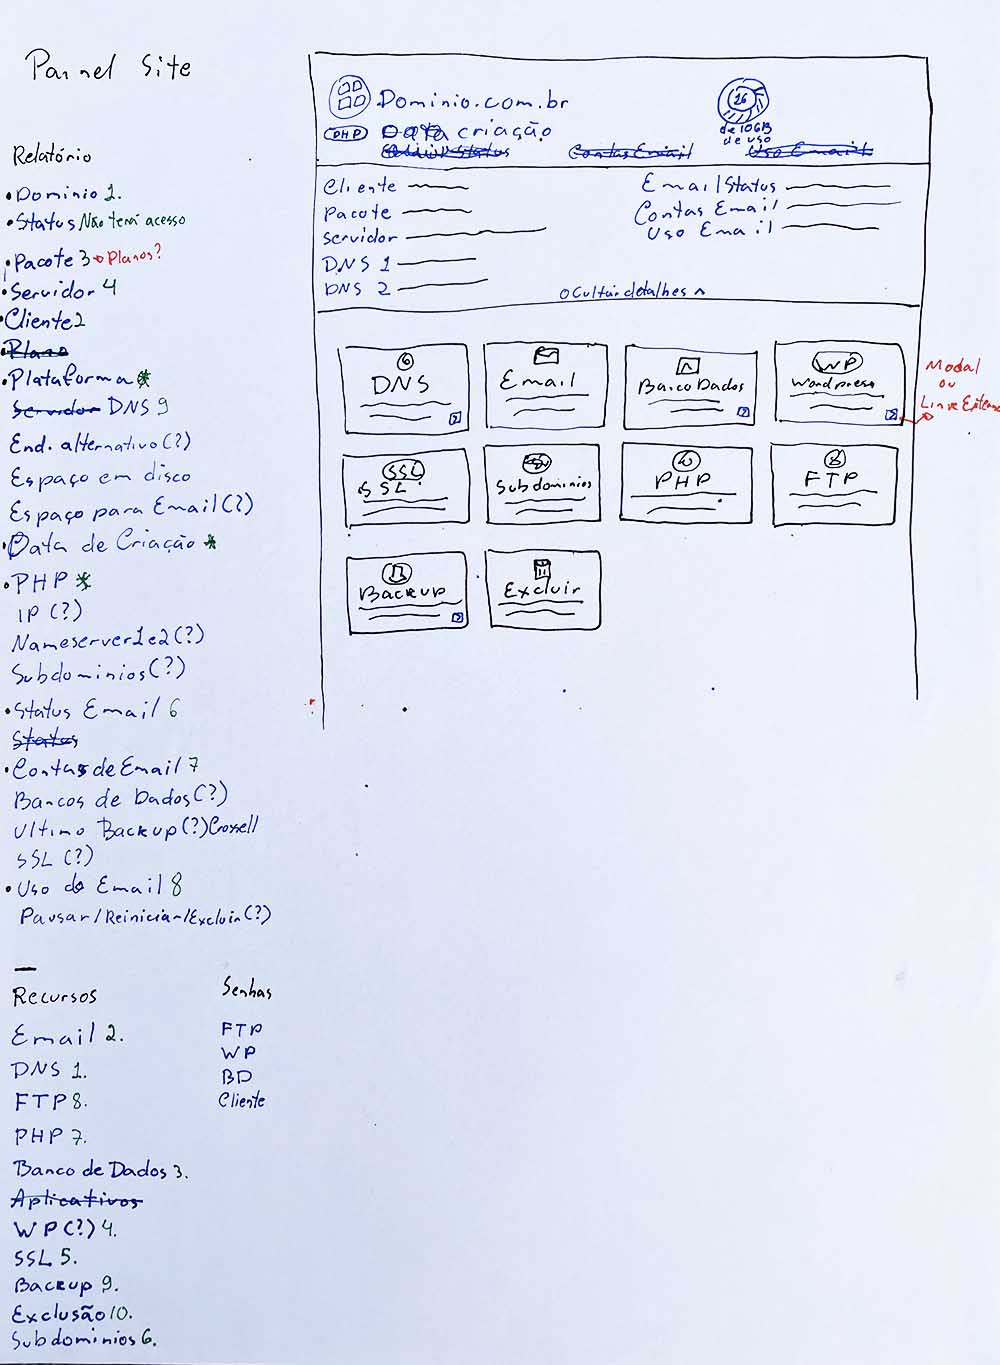 Painel Site
Relatório
• Dominio 1.
• Status Não tem acesso
• Pacote 3 Planos?
• Servidor 4
• Cliente 2
• Plano
• Plataforma *
Servidor DNS 9
End. alternativo (?)
Espaço em disco
Espaço para Email (?)
• Data de Criação *
• PHP *
IP (?)
Nameserver 1 e 2 (?)
Subdominios (?)
• Status Email 6
Status
• Contas de Email 7
Bancos de Dados (?)
Ultimo Backup (?)
SSL (?)
• Uso do Email 8
Pausar/Reiniciar/Excluir (?)
Recursos
Email 2.
DNS 1.
FTP 8.
PHP 7.
Banco de Dados 3.
Aplicativos
WP (?) 4.
SSL 5.
Backup 9.
Exclusão 10.
Subdominios 6.
Senhas
FTP
WP
BD
Cliente
Dominio.com.br
PHP Data criação
Contas Email
Uso Email
26
de 10GB
de uso
Cliente
Pacote
Servidor
DNS 1
DNS 2
Email Status
Contas Email
Uso Email
Ocultar detalhes ^
DNS
Email
Banco Dados
WP
Wordpress
Modal
ou
SSL
SSL
Subdominios
PHP
FTP
Backup
Excluir